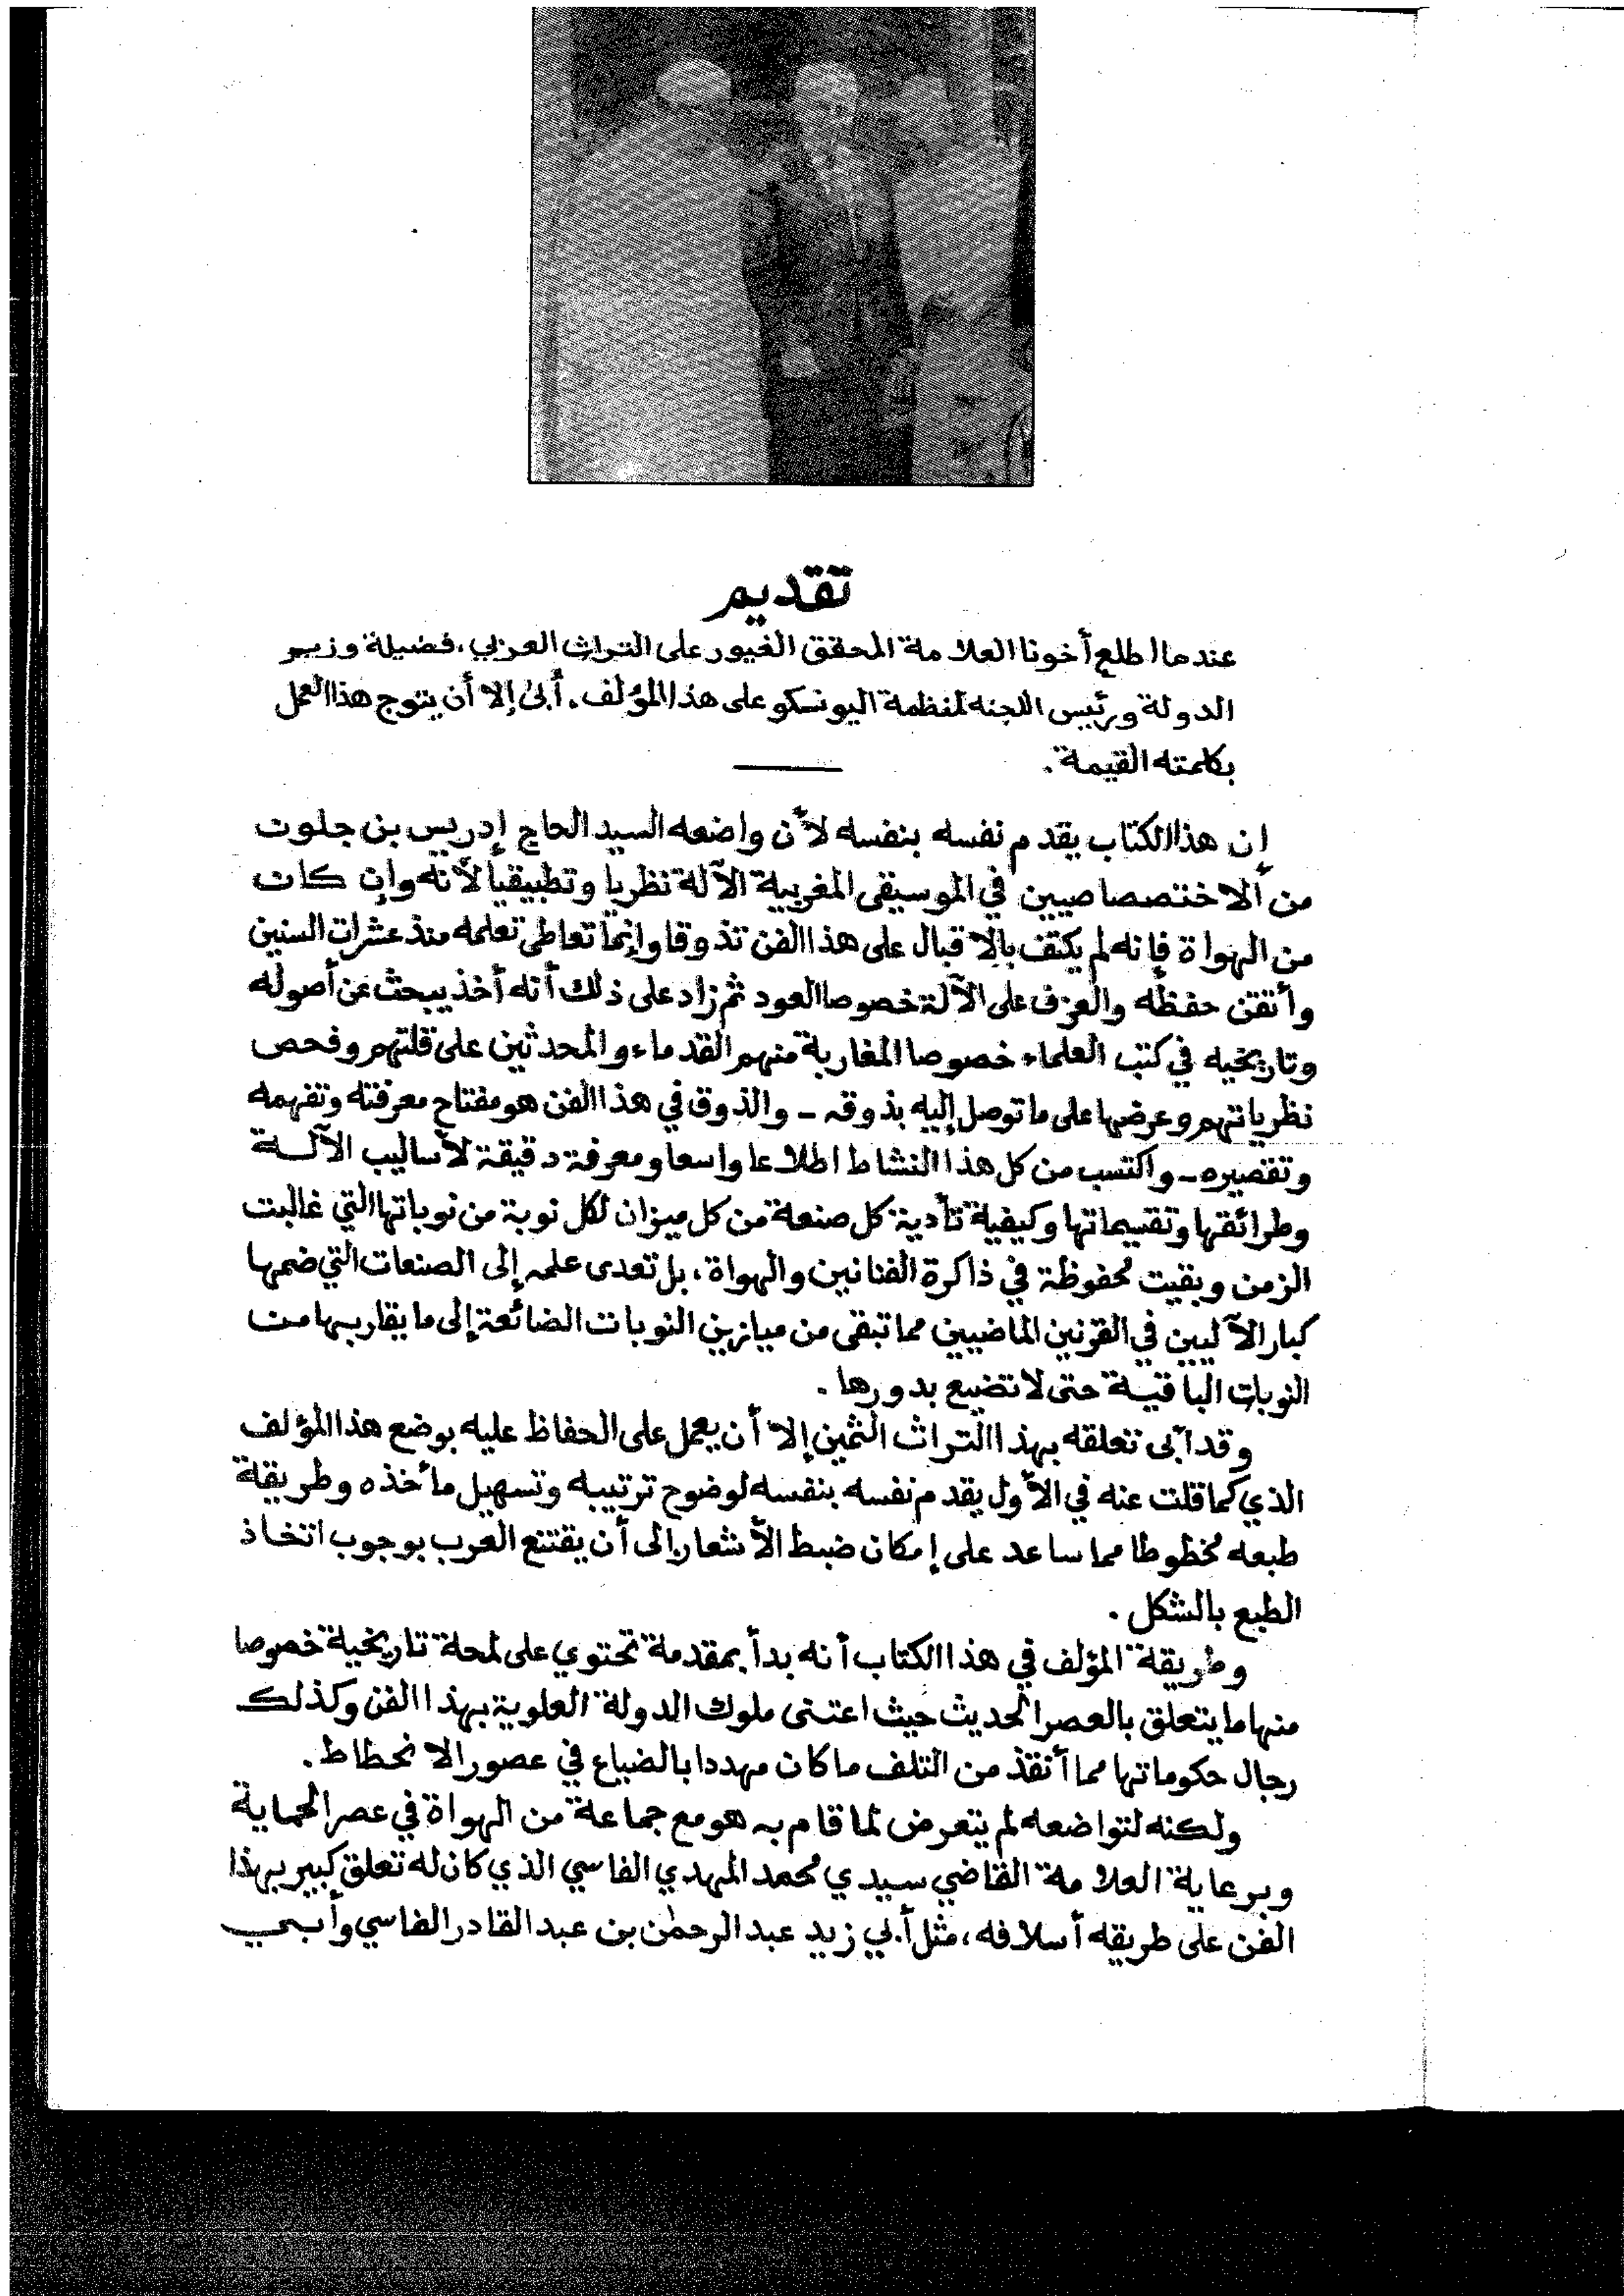 تقديم
عندما اطلع أخونا العلامة المحقق الغيور على التراث العربي، فضيلة وزير
الدولة ورئيس اللجنة لمنظمة اليونسكو على هذا المؤلف. أبى إلا أن يتوج هذا العمل
بكلمته القيمة.
إن هذا الكتاب يقدم نفسه بنفسه لأن واضعه السيد الحاج إدريس بن جلون
من الاختصاصيين في الموسيقى المغربية الآلة نظريا وتطبيقيا لأنه وإن كان
من الهواة فإنه لم يكتف بالاقبال على هذا الفن تذوقا وإنما تعاطى تعلمه منذ عشرات السنين
وأتقن حفظه والعزف على الآلة خصوصا العود ثم زاد على ذلك أنه أخذ يبحث عن أصوله
وتاريخيه في كتب العلماء خصوصا المغاربة منهم القدماء والمحدثين على قلتهم وفحص
نظرياتهم وعرضها على ما توصل إليه بذوقه - والذوق في هذا الفن هو مفتاح معرفته وتفهمه
وتقصيره - واكتسب من كل هذا النشاط اطلاعا واسعا ومعرفة دقيقة لأساليب الآلة
وطرائقها وتقسيماتها وكيفية تأدية كل صنعة من كل ميزان لكل نوبة من نوباتها التي غالبت
الزمن وبقيت محفوظة في ذاكرة الفنانين والهواة، بل تعدى علمه إلى الصنعات التي ضمها
كبار الآليين في القرنين الماضيين مما تبقى من ميازين النوبات الضائعة إلى ما يقاربها من
النوبات الباقية حتى لا تضيع بدورها.
وقد أبى تعلقه بهذا التراث الثمين إلا أن يعمل على الحفاظ عليه بوضع هذا المؤلف
الذي كما قلت عنه في الأول يقدم نفسه بنفسه لوضوح ترتيبه وتسهيل مأخذه وطريقة
طبعه مخطوطا مما ساعد على إمكان ضبط الأشعار إلى أن يقتنع العرب بوجوب اتخاذ
الطبع بالشكل.
وطريقة المؤلف في هذا الكتاب أنه بدأ بمقدمة تحتوي على لمحة تاريخية خصوصا
منها ما يتعلق بالعصر الحديث حيث اعتنى ملوك الدولة العلوية بهذا الفن وكذلك
رجال حكوماتها مما أنقذ من التلف ما كان مهددا بالضياع في عصور الانحطاط.
ولكنه لتواضعه لم يتعرض لما قام به هو مع جماعة من الهواة في عصر الحماية
وبرعاية العلامة القاضي سيدي محمد المهدي الفاسي الذي كان له تعلق كبير بهذا
الفن على طريقه أسلافه، مثل أبي زيد عبد الرحمن بن عبد القادر الفاسي وأبي